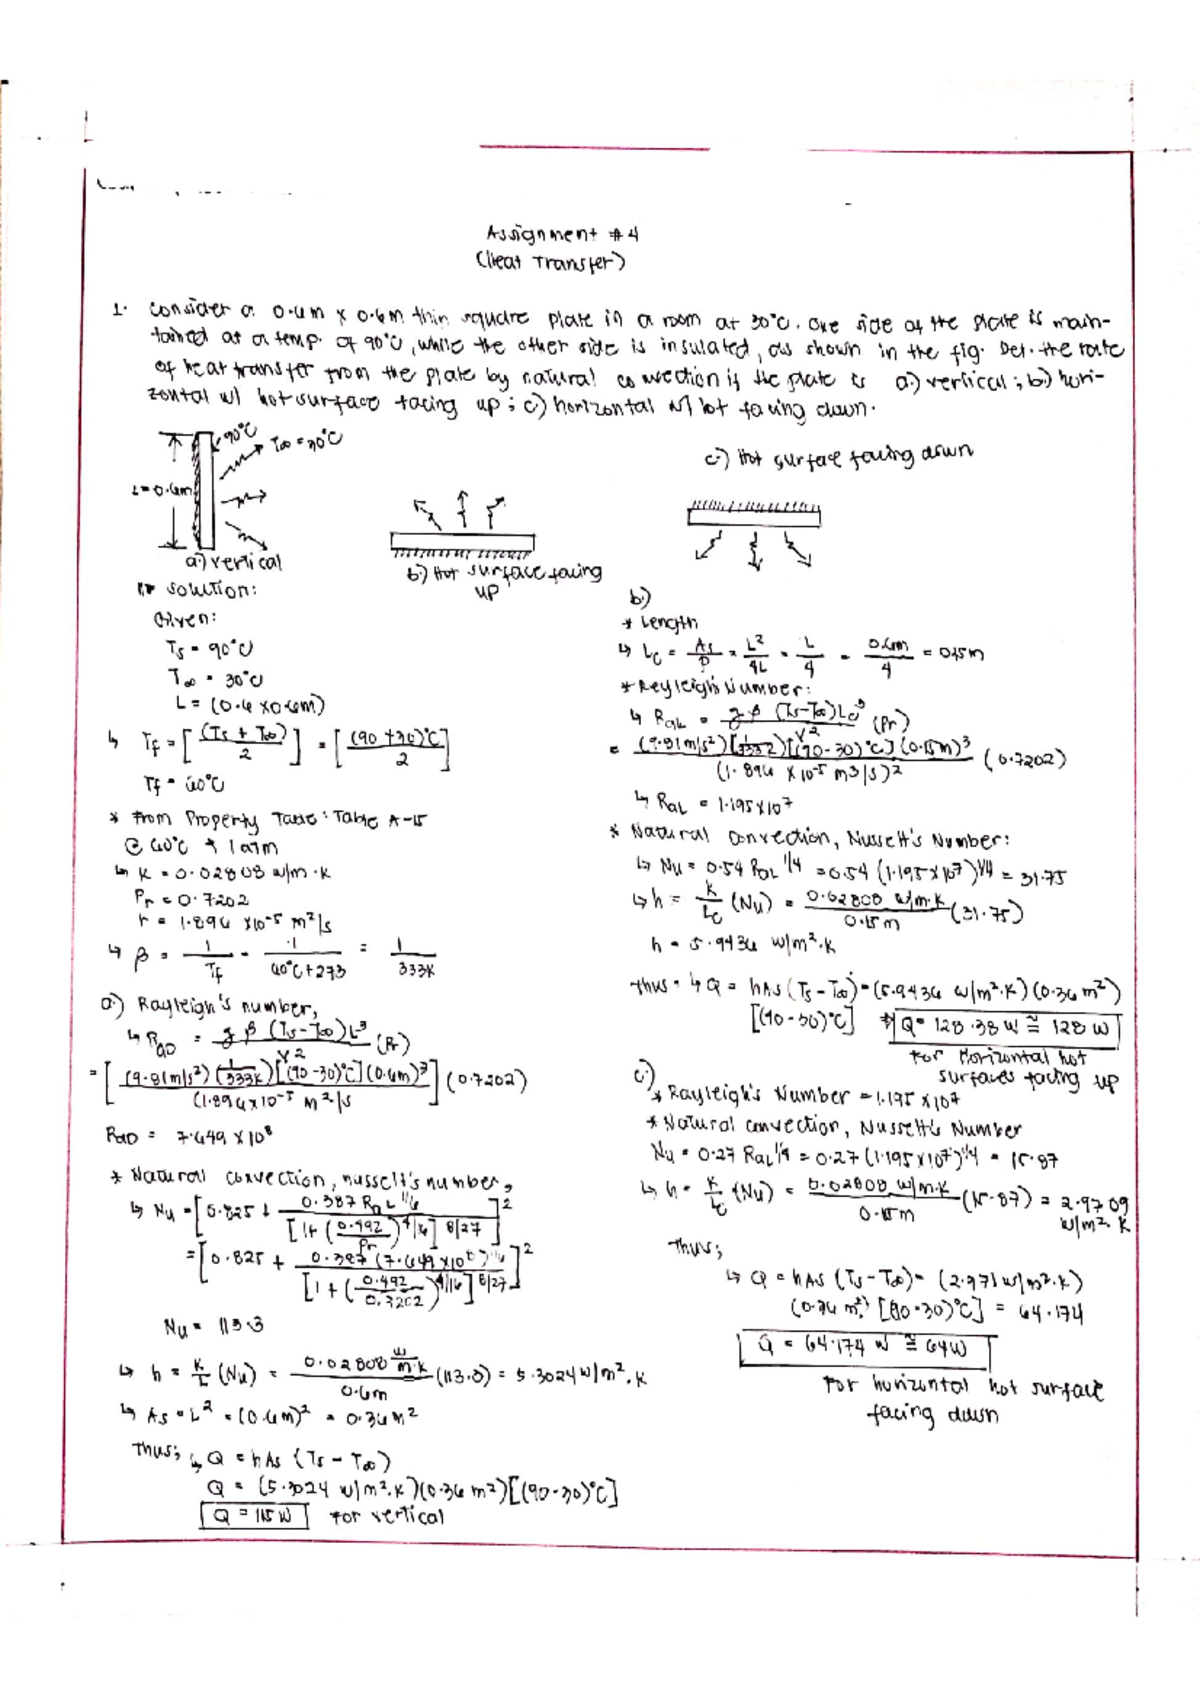 Assignment # 4
(Heat Transfer)
1. Consider a 0.6m x 0.6m thin square plate in a room at 30°C. One side of the plate is main-
tained at a temp. of 90°C, while the other side is insulated, as shown in the fig. Det. the rate
of heat transfer from the plate by natural convection if the plate is a.) vertical; b.) hori-
zontal w/ hot surface facing up; c.) horizontal w/ hot facing down.
90°C
T∞ = 30°C
L = 0.6m
a.) vertical
b.) Hot surface facing
up
c.) Hot surface facing down
Solution:
Given:
Ts = 90°C
T∞ = 30°C
L = (0.6 x 0.6m)
↳ Tf = [(Ts + T∞)/2] = [(90 + 30)°C/2]
Tf = 60°C
* From Property Table: Table A-15
@ 60°C & 1 atm
↳ K = 0.02808 W/m.K
Pr = 0.7202
r = 1.896 x10⁻⁵ m²/s
↳ β = 1/Tf = 1/(60°C+273) = 1/333K
a.) Rayleigh's number,
↳ RaD = gβ(Ts-T∞)L³/γ² (Pr)
= [(9.81m/s²)(1/333K)[(90-30)°C](0.6m)³/(1.896x10⁻⁵ m²/s] (0.7202)
RaD = 7.649 x 10⁸
* Natural convection, nusselt's number,
↳ Nu = [0.825 + 0.387 RaL^1/6/[1+(0.492/Pr)^9/16]^8/27]²
= [0.825 + 0.387 (7.649x10⁸)^1/6/[1+(0.492/0.7202)^9/16]^8/27]²
Nu = 113.3
↳ h = K/L (Nu) = 0.02808 W/m.K/0.6m (113.3) = 5.3024 W/m².K
↳ As = L² = (0.6m)² = 0.36m²
Thus; ↳ Q = hAs (Ts - T∞)
Q = (5.3024 W/m².K)(0.36 m²)[(90-30)°C]
Q = 115 W for vertical
b.)
* Length
↳ Lc = As/P = L²/4L = L/4 = 0.6m/4 = 0.15m
* Reyleigh's Number:
↳ RaL = gβ(Ts-T∞)Lc³/γ² (Pr)
= (9.81m/s²)[1/333][(90-30)°C](0.15m)³/(1.896 x10⁻⁵ m3/s)² (0.7202)
↳ RaL = 1.195x10⁷
* Natural Convection, Nusselt's Number:
↳ Nu = 0.54 RaL^1/4 = 0.54 (1.195x10⁷)^1/4 = 31.75
↳ h = K/Lc (Nu) = 0.02808 W/m.K/0.15m (31.75)
h = 5.9436 W/m².K
Thus: ↳ Q = hAs(Ts-T∞) = (5.9436 W/m².K)(0.36m²)
[(90-30)°C] Q = 128.38 W ≅ 128 W
For Horizontal hot
surfaces facing up
c.)
* Rayleigh's Number = 1.195x10⁷
* Natural convection, Nusselt's Number
Nu = 0.27 RaL^1/4 = 0.27 (1.195x10⁷)^1/4 = 15.87
↳ h = K/Lc (Nu) = 0.02808 W/m.K/0.15m (15.87) = 2.9709
W/m².K
Thus;
↳ Q = hAs (Ts-T∞) = (2.971 W/m².K)
(0.36 m²) [(90-30)°C] = 64.174
Q = 64.174 W ≅ 64W
For horizontal hot surface
facing down